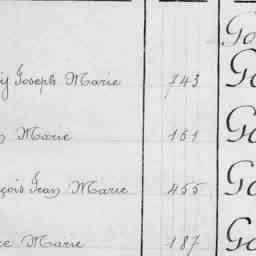 Go
y Joseph Marie 743 Go
Marie 161 Go
çois Jean Marie 455 Go
ce Marie 187 Go